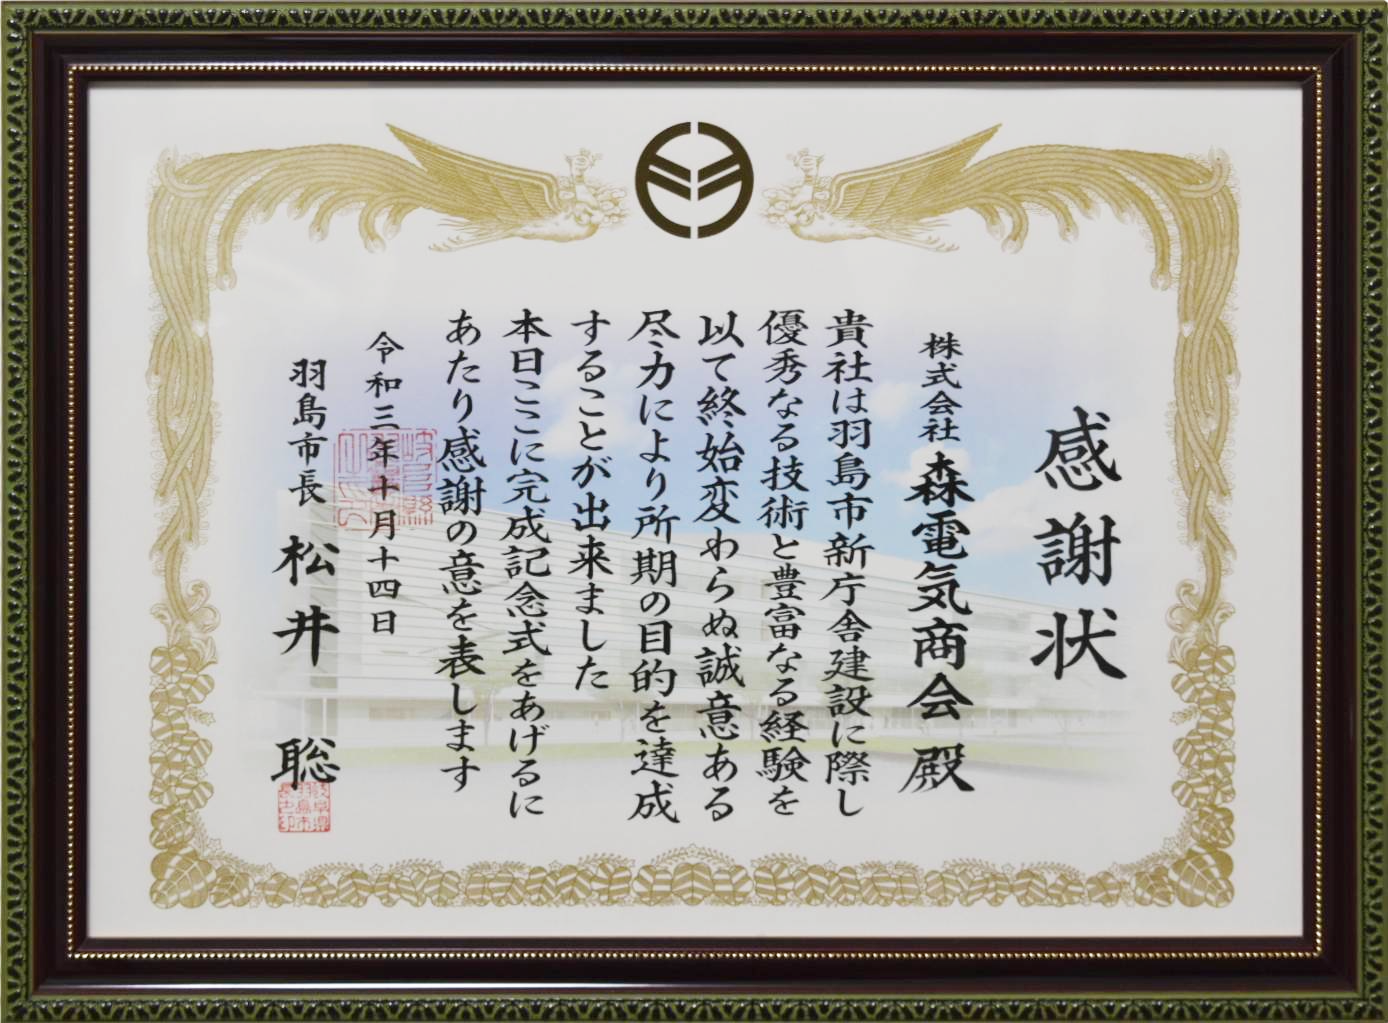 感謝状
株式会社 森電気商会 殿
貴社は羽島市新庁舎建設に際し
優秀なる技術と豊富なる経験を
以て終始変わらぬ誠意ある
尽力により所期の目的を達成
することが出来ました
本日ここに完成記念式をあげるに
あたり感謝の意を表します
令和三年十月十四日
羽島市長 松井 聡